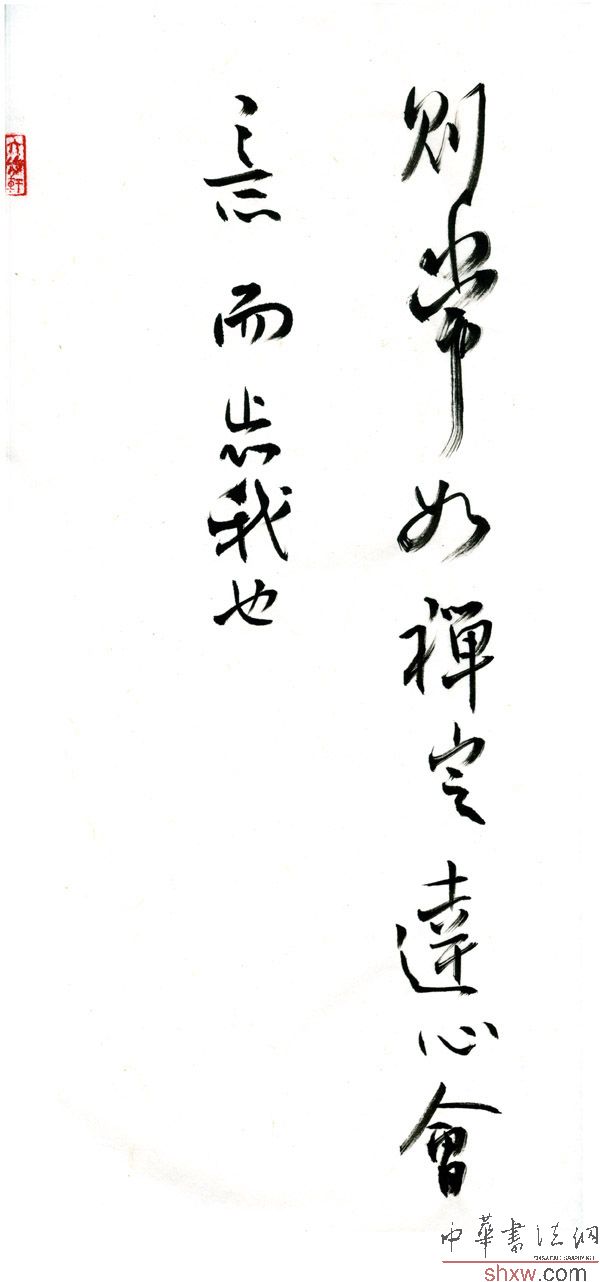 则常如禅定達心會
而忘我也
中華書法網
shxw.com